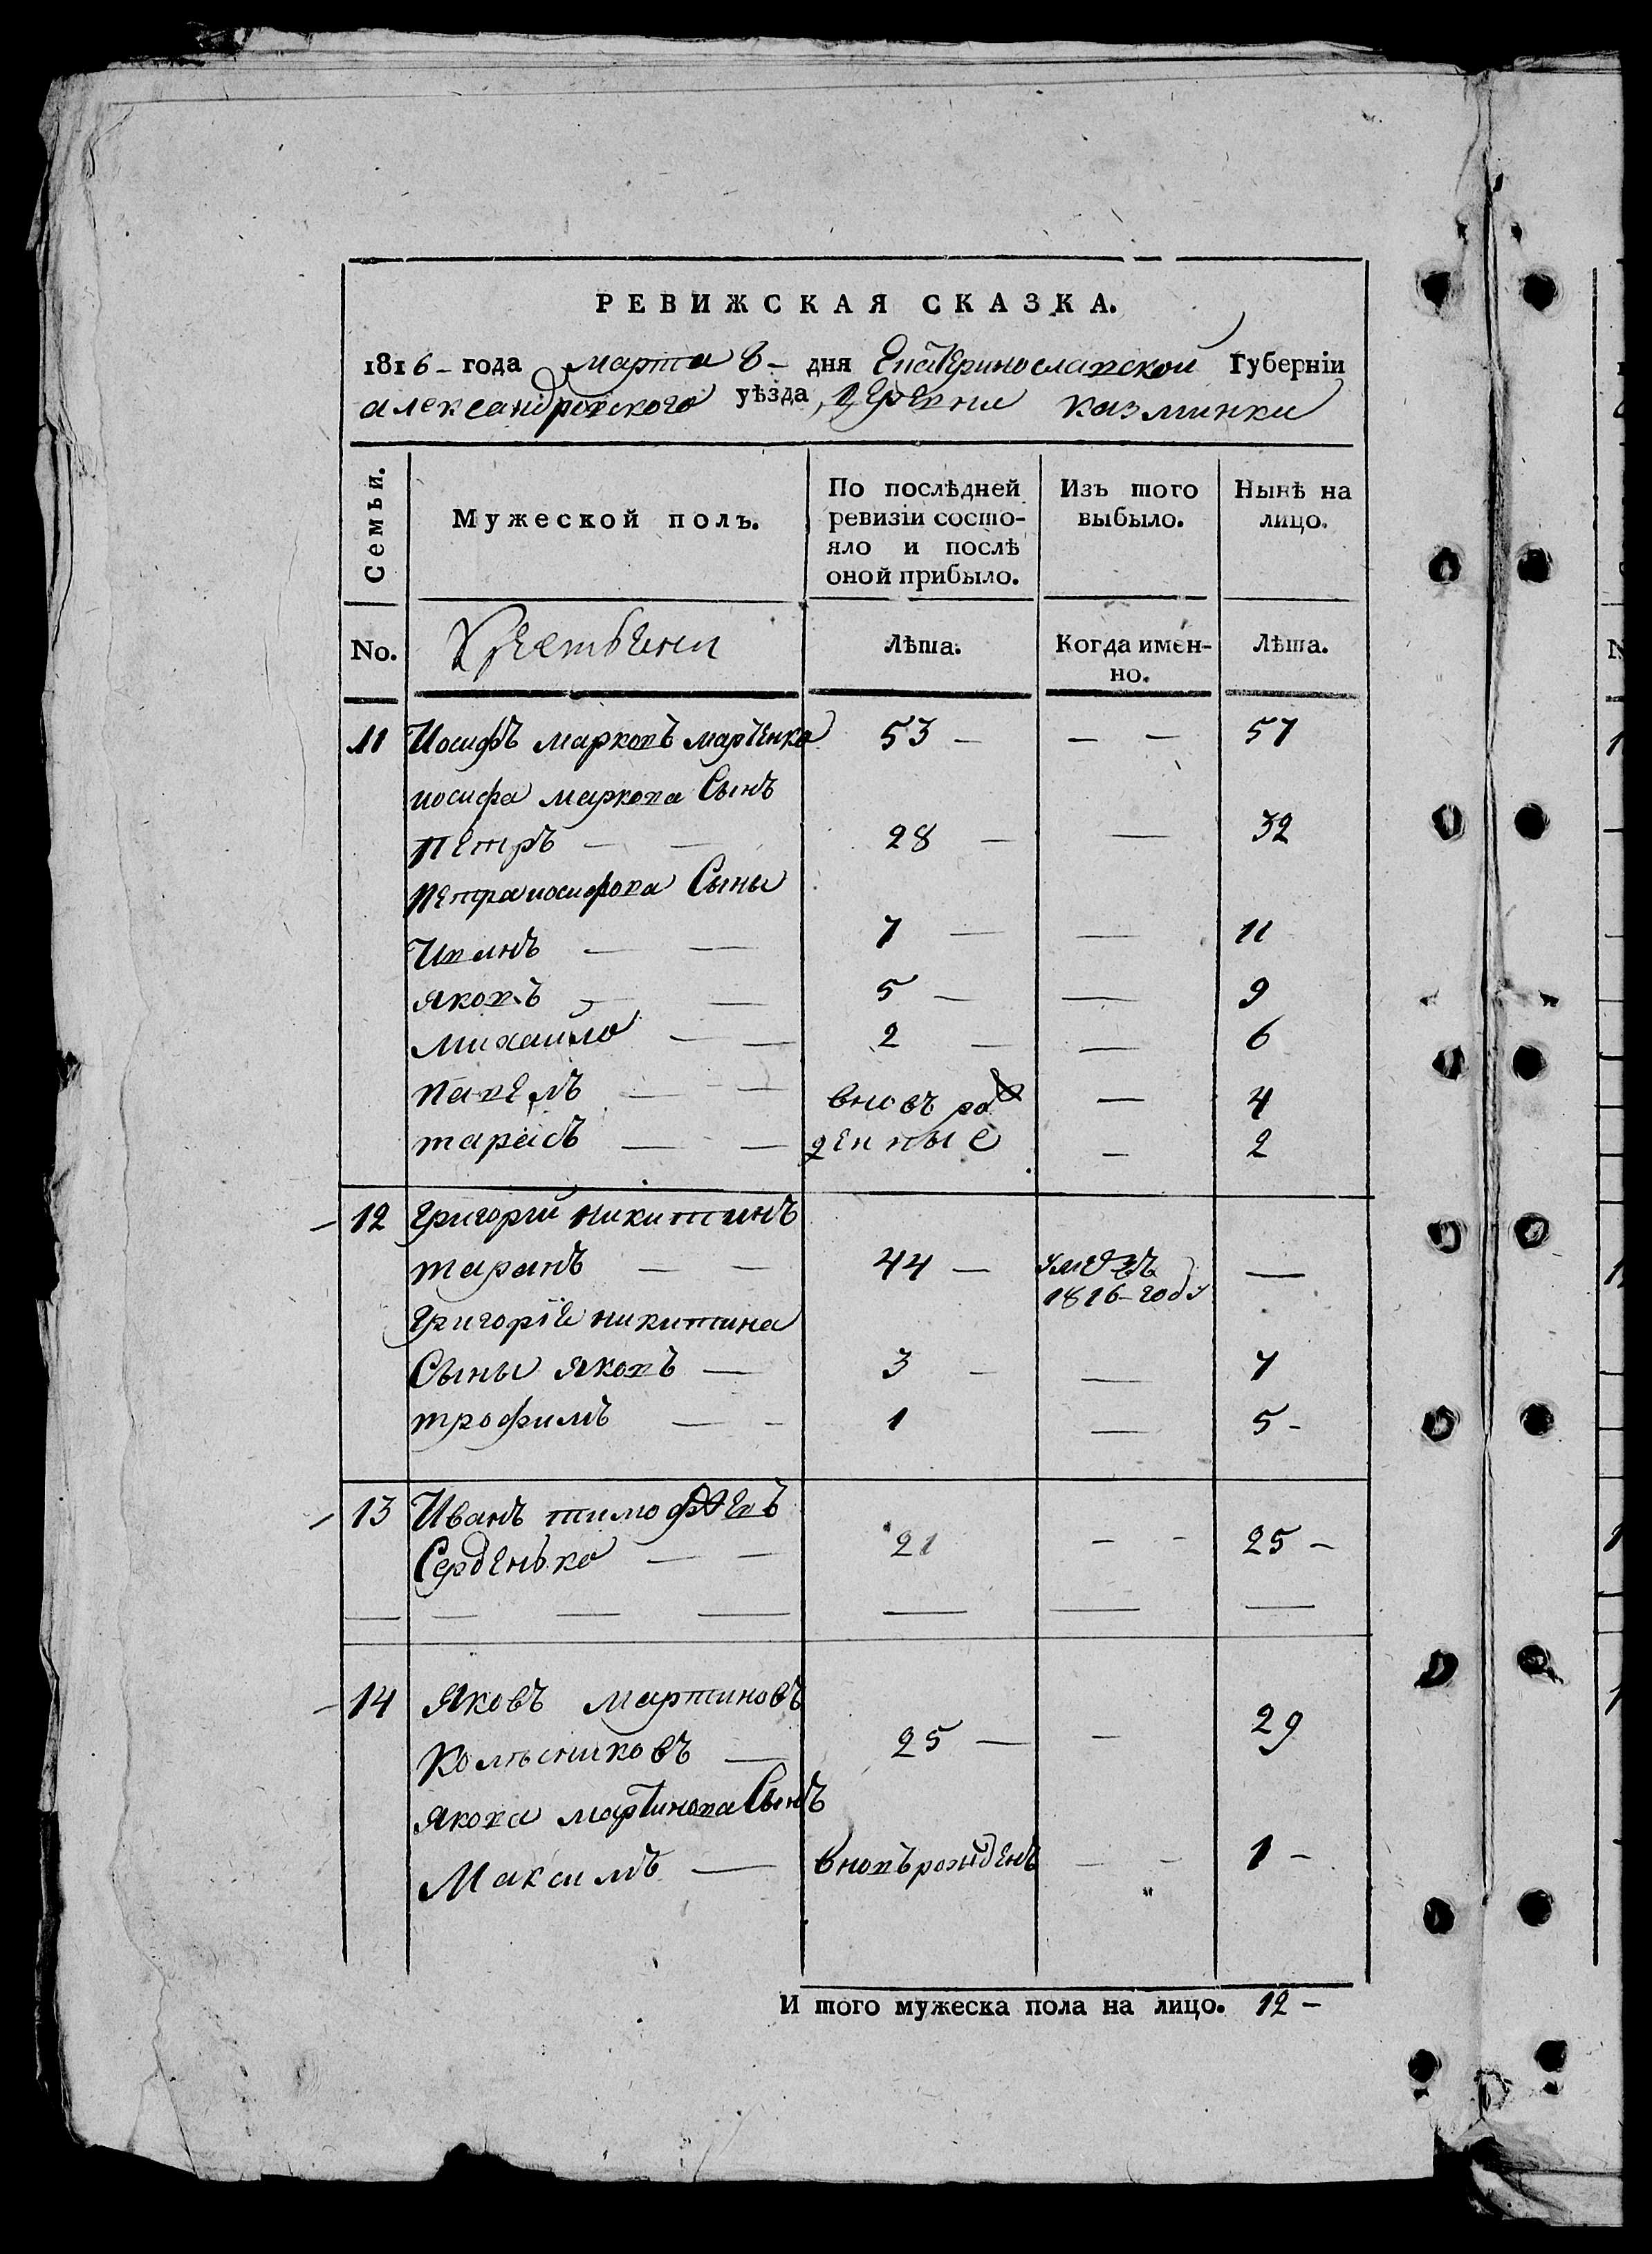 РЕВИЖСКАЯ СКАЗКА.
1816 - года марта 6 - дня Екатеринославской Губерніи
александровского уѣзда, деревни казминки
Семьи. Мужеской полъ. По послѣдней ревизіи состояло и послѣ оной прибыло. Изъ того выбыло. Нынѣ на лицо.
No. Крестьени Лѣта. Когда именно. Лѣта.
11 Иосифъ марковъ марченко 53 — — — 57
иосифа маркова Сынъ
петръ — — 28 — — 32
петра иосифова Сыны
Ивлнъ — — 7 — — 11
яковъ — — 5 — — 9
михайло — — 2 — — 6
павелъ — — вновь рож — 4
тарасъ — — денные — 2
12 Григорий никитинъ
таранъ — — 44 — умеръ 1816 - году —
Григорiе никитина
Сыны яковъ — 3 — — 7
трофимъ — — 1 — 5 -
13 Иванъ тимофѣевъ
Серденько — — 21 — - 25 -
14 Яковъ мартиновъ
Колѣсниковъ — 25 — — 29
якова мартинова Сынъ
Максимъ — вновъ рожденъ — - 1 -
И того мужеска пола на лицо. 12 -